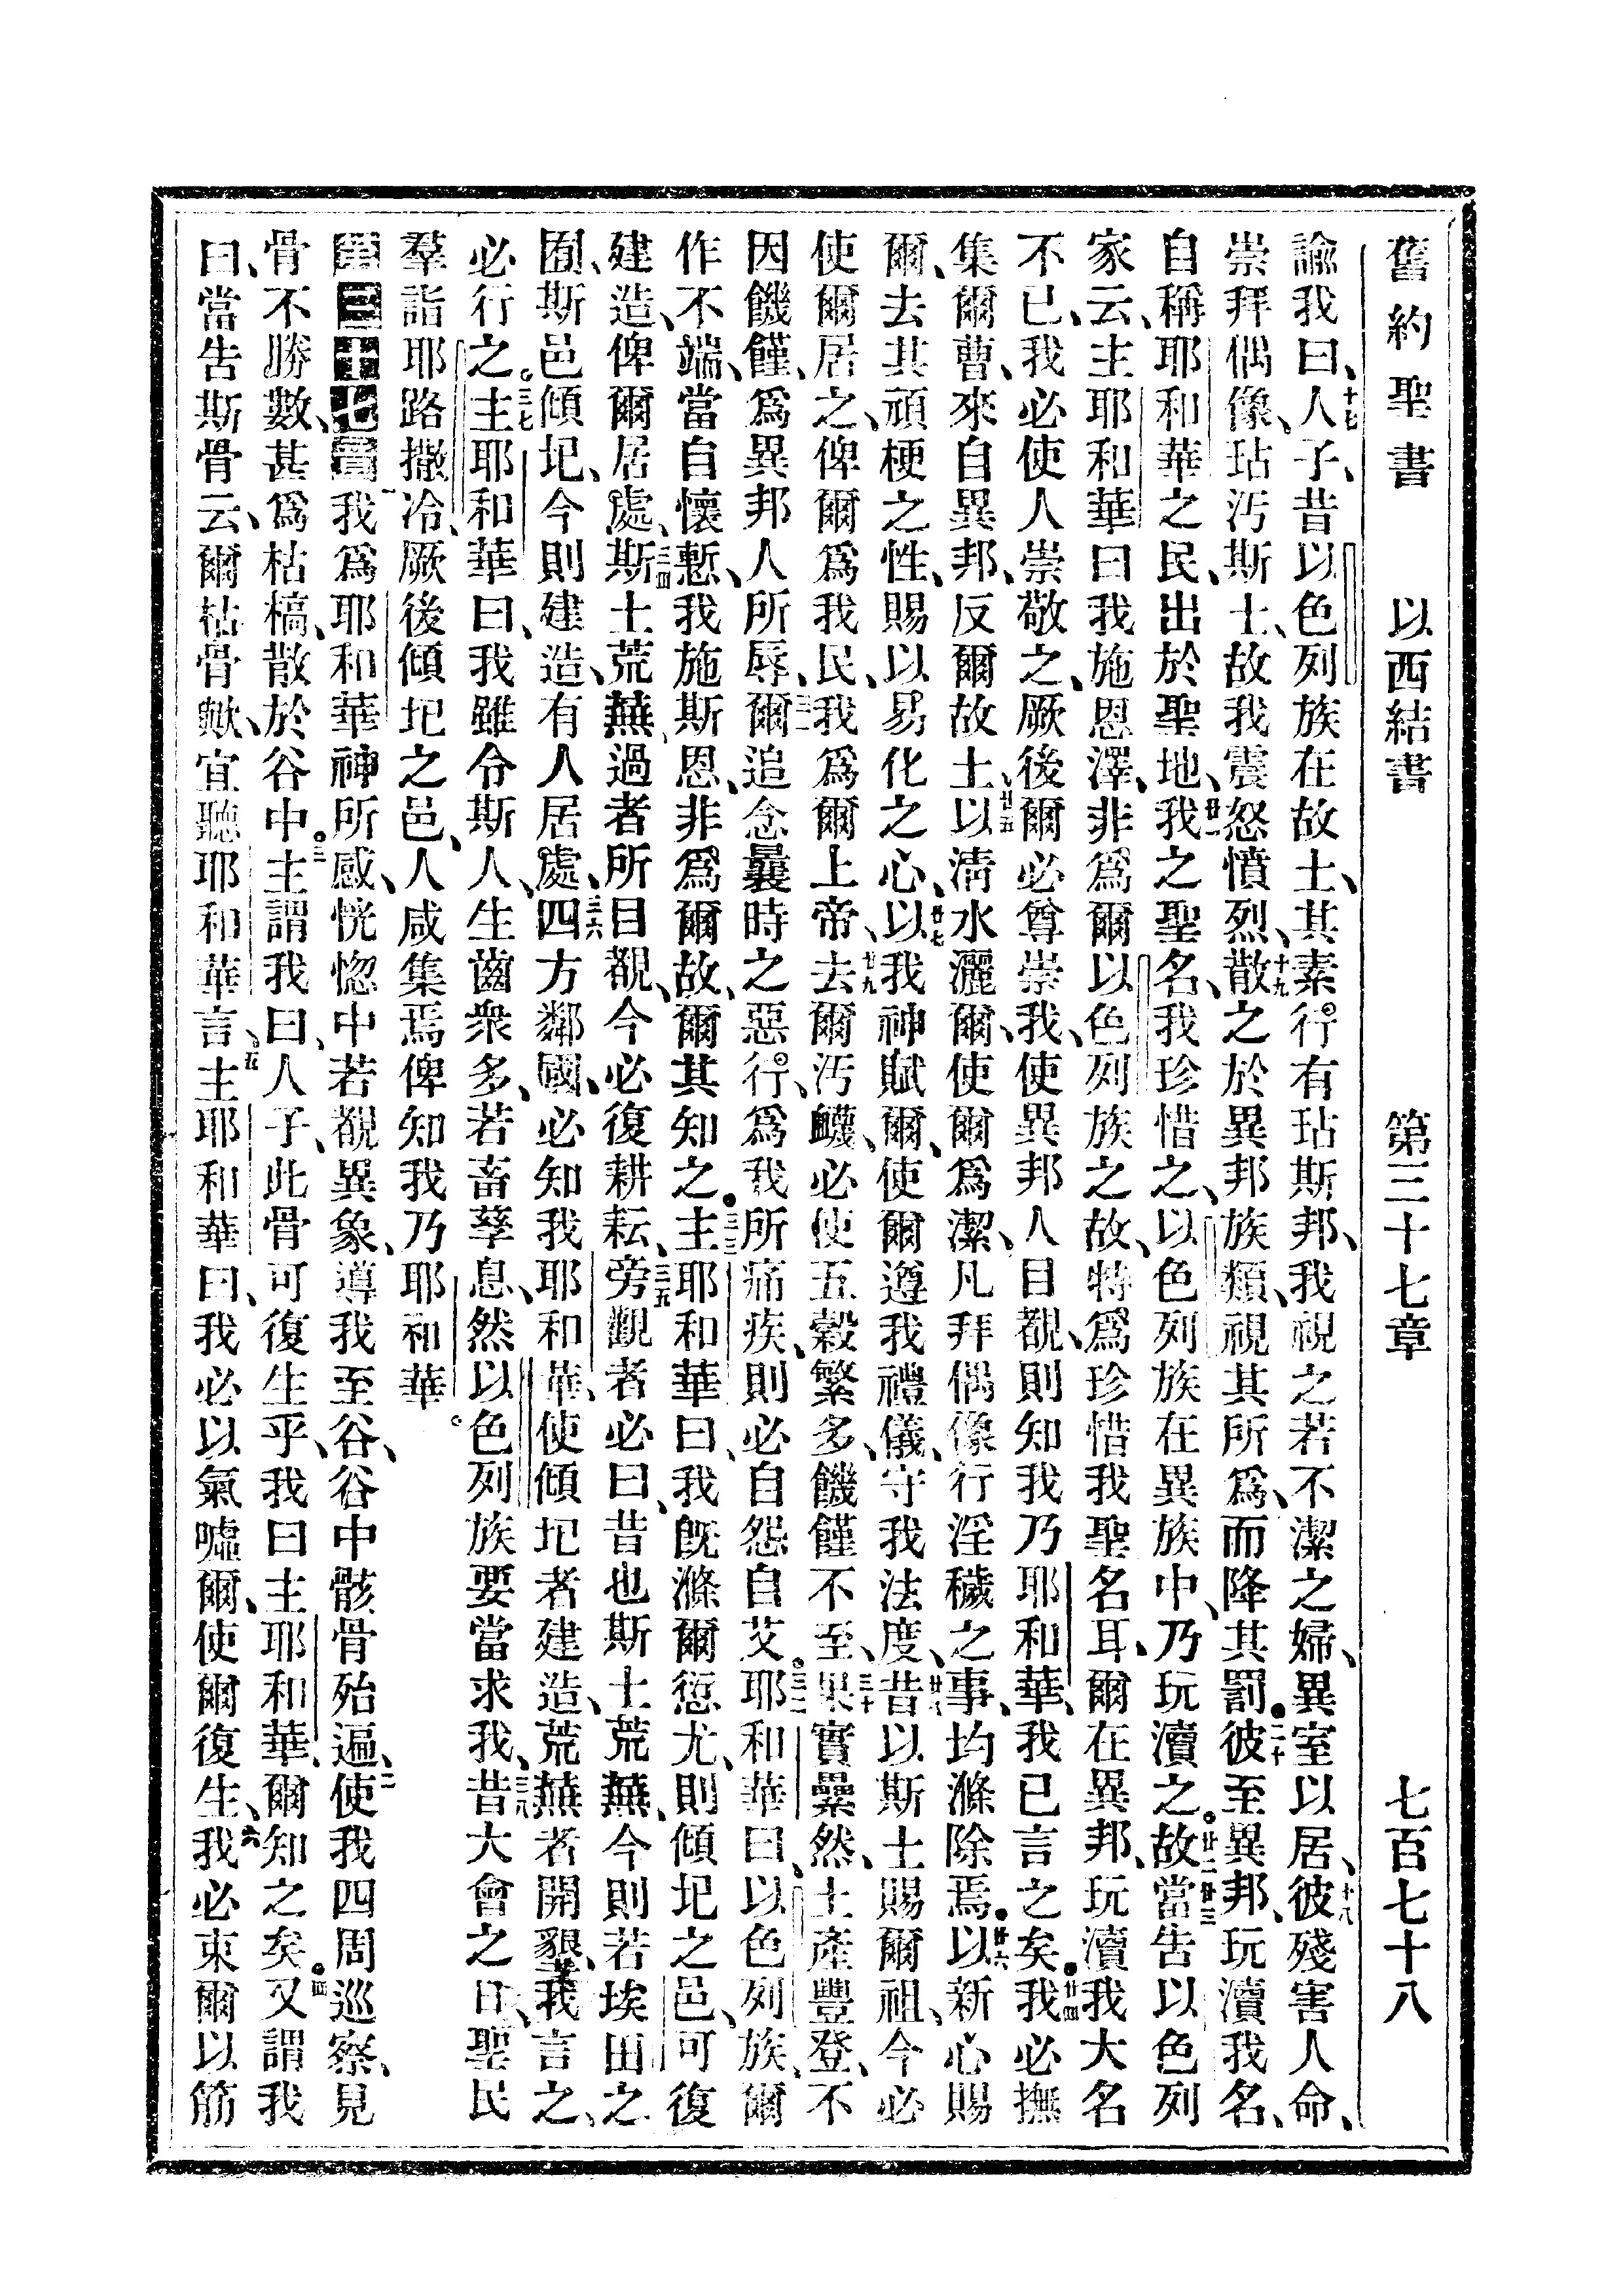 舊約聖書 以西結書 第三十七章 七百七十八
諭我曰、十七人子、昔以色列族在故土、其素行有玷斯邦、我視之若不潔之婦、異室以居、十八彼殘害人命、
崇拜偶像、玷汚斯土、故我震怒憤烈、十九散之於異邦族類、視其所爲、而降其罰。二十彼至異邦、玩瀆我名、
自稱耶和華之民、出於聖地、廿一我之聖名、我珍惜之、以色列族在異族中、乃玩瀆之。廿二廿三故當告以色列
家云、主耶和華曰我施恩澤、非爲爾以色列族之故、特爲珍惜我聖名耳、爾在異邦、玩瀆我大名
不已、我必使人崇敬之、厥後爾必尊崇我、使異邦人目覩、則知我乃耶和華、我已言之矣。廿四我必撫
集爾曹、來自異邦、反爾故土、廿五以淸水灑爾、使爾爲潔、凡拜偶像行淫穢之事、均滌除焉。廿六以新心賜
爾、去其頑梗之性、賜以易化之心、廿七以我神賦爾、使爾遵我禮儀、守我法度、廿八昔以斯土賜爾祖、今必
使爾居之、俾爾爲我民、我爲爾上帝、廿九去爾汚衊、必使五穀繁多、饑饉不至、三十果實纍然、土產豐登、不
因饑饉、爲異邦人所辱、三一爾追念曩時之惡行、爲我所痛疾、則必自怨自艾。三二耶和華曰、以色列族、爾
作不端、當自懷慙、我施斯恩、非爲爾故、爾其知之。三三主耶和華曰、我旣滌爾愆尤、則傾圮之邑、可復
建造、俾爾居處、三四斯土荒蕪、過者所目覩、今必復耕耘、三五旁觀者必曰、昔也斯土荒蕪、今則若埃田之
囿、斯邑傾圮、今則建造、有人居處、三六四方鄰國、必知我耶和華、使傾圮者建造、荒蕪者開墾、我言之、
必行之。三七主耶和華曰、我雖令斯人、生齒衆多、若畜孳息、然以色列族要當求我、三八昔大會之日、聖民
羣詣耶路撒冷、厥後傾圮之邑、人咸集焉俾知我乃耶和華。
第三十七章一我爲耶和華神所感、恍惚中若覩異象、導我至谷、谷中骸骨殆遍、二使我四周巡察、見
骨不勝數、甚爲枯槁、散於谷中。三主謂我曰、人子、此骨可復生乎、我曰主耶和華、爾知之矣。四又謂我
曰、當告斯骨云、爾枯骨歟、宜聽耶和華言、五主耶和華曰、我必以氣噓爾、使爾復生、六我必束爾以筋